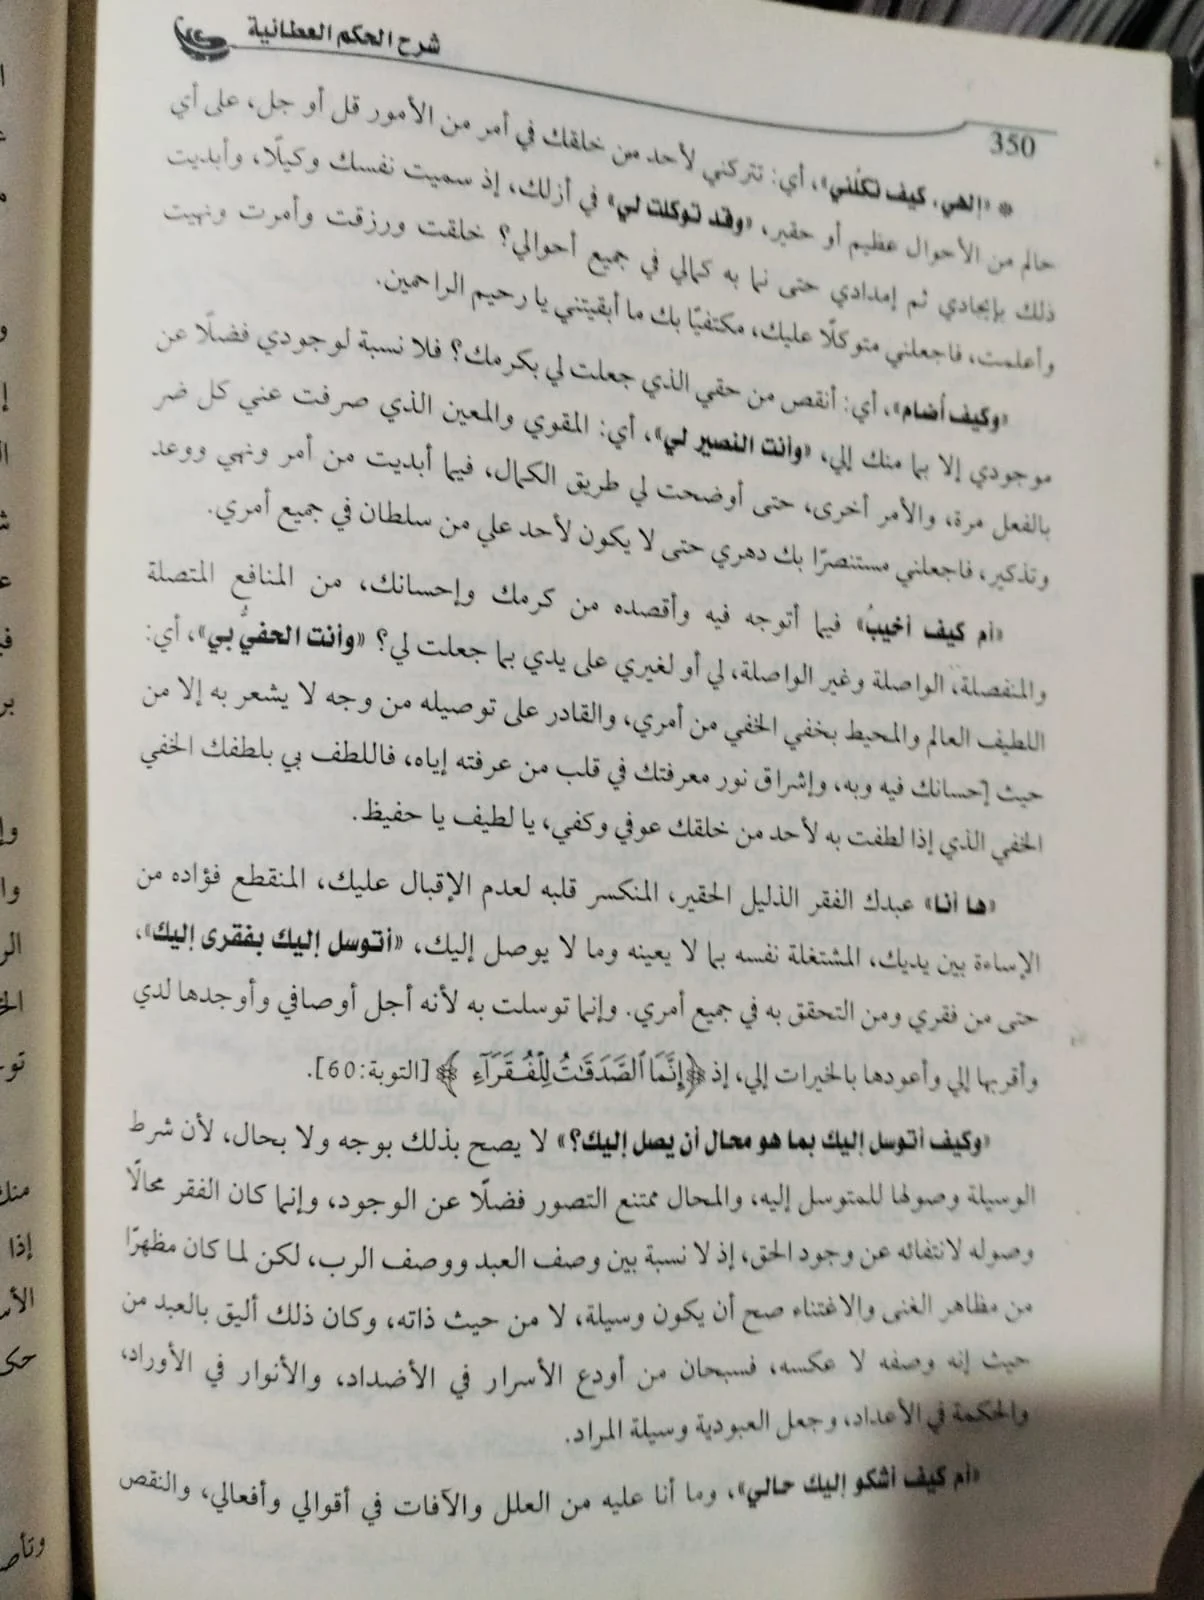 شرح الحكم العطائية
350
* «إلهي، كيف تكلني»، أي: تتركني لأحد من خلقك في أمر من الأمور قل أو جل، على أي
حال من الأحوال عظيم أو حقير، «وقد توكلت لي» في أزلك، إذ سميت نفسك وكيلًا، وأبديت
ذلك بإيجادي ثم إمدادي حتى نما به كمالي في جميع أحوالي؟ خلقت ورزقت وأمرت ونهيت
وأعلمت، فاجعلني متوكلًا عليك، مكتفيًا بك ما أبقيتني يا رحيم الراحمين.
«وكيف أضام»، أي: أنقص من حقي الذي جعلت لي بكرمك؟ فلا نسبة لوجودي فضلًا عن
موجودي إلا بما منك إلي، «وأنت النصير لي»، أي: المقوي والمعين الذي صرفت عني كل ضر
بالفعل مرة، والأمر أخرى، حتى أوضحت لي طريق الكمال، فيما أبديت من أمر ونهي ووعد
وتذكير، فاجعلني مستنصرًا بك دهري حتى لا يكون لأحد علي من سلطان في جميع أمري.
«أم كيف أخيبُ» فيما أتوجه فيه وأقصده من كرمك وإحسانك، من المنافع المتصلة
والمنفصلة، الواصلة وغير الواصلة، لي أو لغيري على يدي بما جعلت لي؟ «وأنت الحفيُّ بي»، أي:
اللطيف العالم والمحيط بخفي الخفي من أمري، والقادر على توصيله من وجه لا يشعر به إلا من
حيث إحسانك فيه وبه، وإشراق نور معرفتك في قلب من عرفته إياه، فاللطف بي بلطفك الخفي
الخفي الذي إذا لطفت به لأحد من خلقك عوفي وكفي، يا لطيف يا حفيظ.
«ها أنا» عبدك الفقر الذليل الحقير، المنكسر قلبه لعدم الإقبال عليك، المنقطع فؤاده من
الإساءة بين يديك، المشتغلة نفسه بما لا يعينه وما لا يوصل إليك، «أتوسل إليك بفقري إليك»،
حتى من فقري ومن التحقق به في جميع أمري. وإنما توسلت به لأنه أجل أوصافي وأوجدها لدي
وأقربها إلي وأعودها بالخيرات إلي، إذ ﴿إِنَّمَا ٱلصَّدَقَٰتُ لِلۡفُقَرَآءِ﴾ [التوبة:60].
«وكيف أتوسل إليك بما هو محال أن يصل إليك؟» لا يصح بذلك بوجه ولا بحال، لأن شرط
الوسيلة وصولها للمتوسل إليه، والمحال ممتنع التصور فضلًا عن الوجود، وإنما كان الفقر محالًا
وصوله لانتفائه عن وجود الحق، إذ لا نسبة بين وصف العبد ووصف الرب، لكن لما كان مظهرًا
من مظاهر الغنى والاغتناء صح أن يكون وسيلة، لا من حيث ذاته، وكان ذلك أليق بالعبد من
حيث إنه وصفه لا عكسه، فسبحان من أودع الأسرار في الأضداد، والأنوار في الأوراد،
والحكمة في الأعداد، وجعل العبودية وسيلة المراد.
«أم كيف أشكو إليك حالي»، وما أنا عليه من العلل والآفات في أقوالي وأفعالي، والنقص